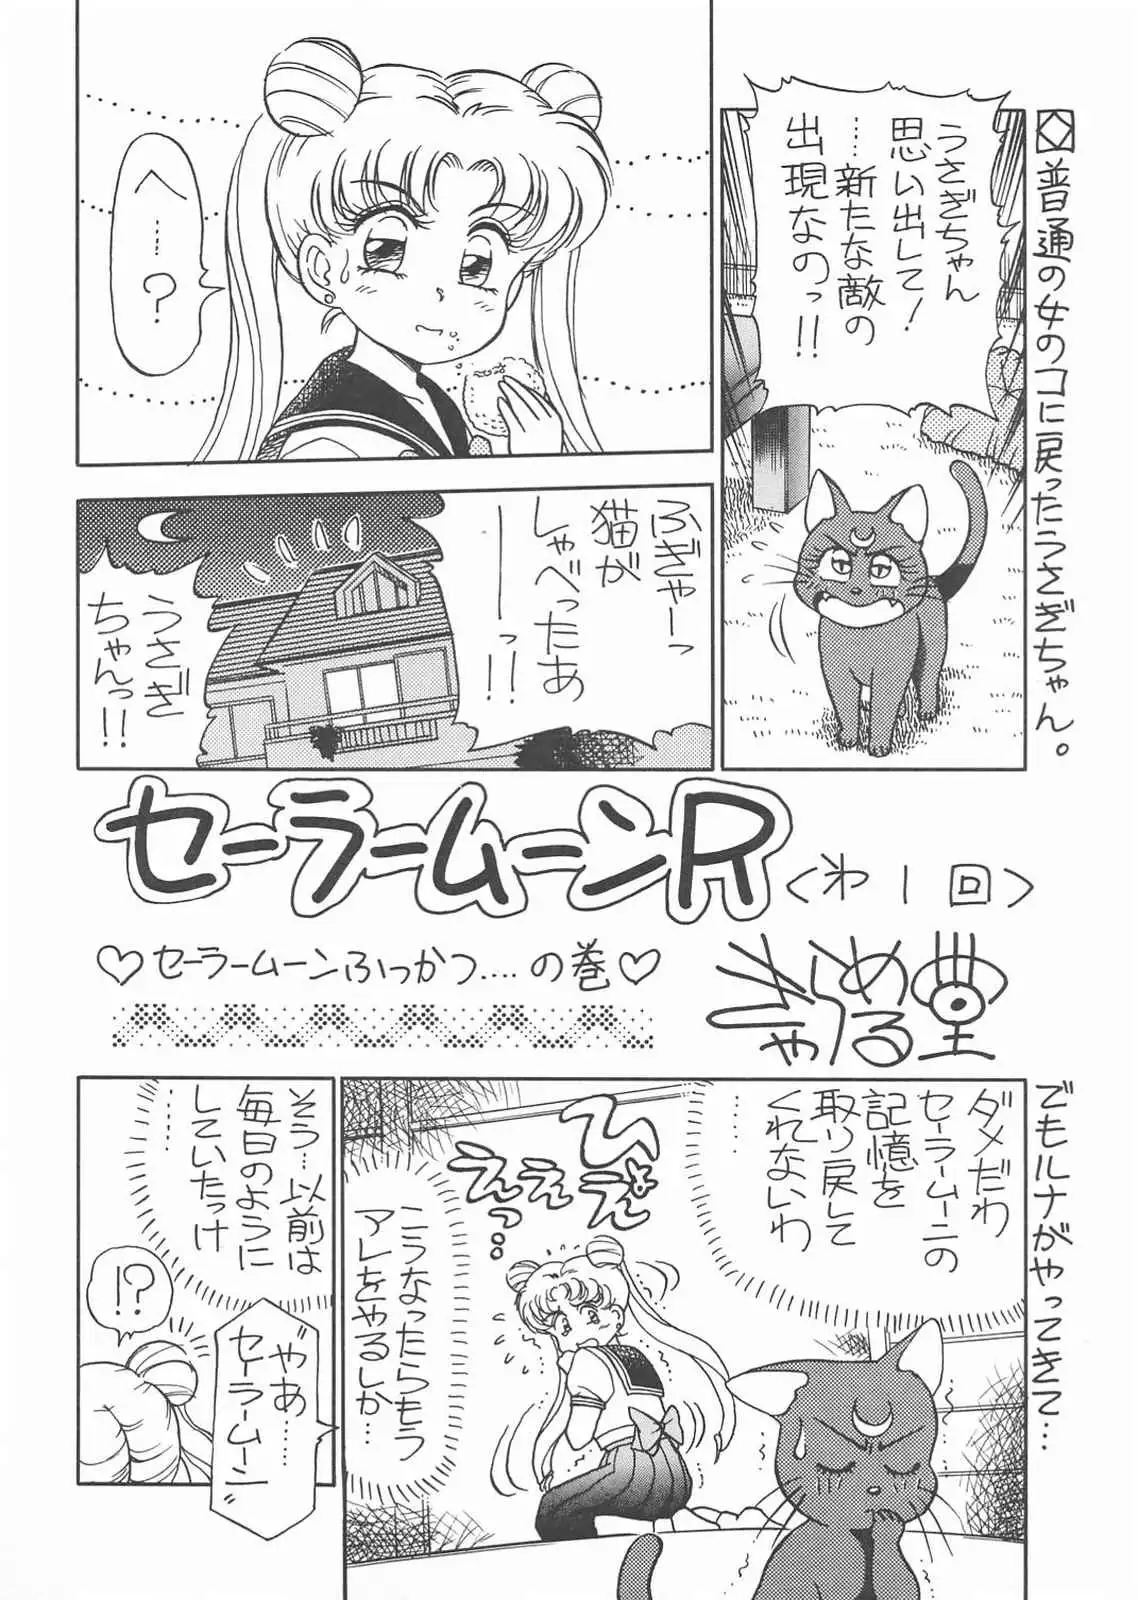 普通の女のコに戻ったうさぎちゃん。
うさぎちゃん
思い出して!
…新たな敵の
出現なのっ!!
へ…?
ふぎゃーっ
猫が
しゃべったあ
ーっ!!
うさぎ
ちゃんっ!!
セーラームーンR
<第1回>
♡セーラームーンふっかつ‥‥の巻♡
きゃらめる堂
でもルナがやってきて…
ダメだわ
セーラームーンの
記憶を
取り戻して
くれないわ
ひょえ
えええ
っ…
こうなったらもう
アレをやるしか…
そう…以前は
毎日のように
していたっけ
……
“やあ…
セーラームーン”
!?